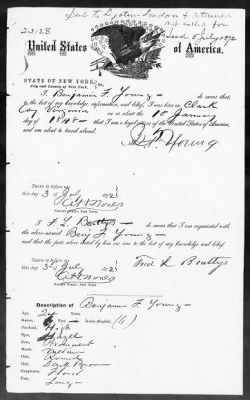 23128
United States of America.
STATE OF NEW YORK,
City and County of New York,
I, Benjamin F. Young do swear, that
to the best of my knowledge, information, and belief, I was born in Clark
Coy Virginia on or about the 10 January
day of 1848 that I am a loyal citizen of the United States of America,
and am about to travel abroad.
B F Young
Sworn to before me
this 3 of July 1872
Notary Public, New York.
I F. L. Beattys do swear, that I am acquainted with
the above-named Benj F Young
and that the facts above stated by him are true to the best of my knowledge and belief.
Fred L Beattys
Sworn to before me
this 3 of July 1872
Notary Public, New York.
Description of Benjamin F. Young
Age, 24
Stature, Five Feet Inches English, (6)
Forehead, High
Eyes, Hazel
Nose, Prominent
Mouth, Medium
Chin, Round
Hair, Dark Brown
Complexion, Florid
Face, Long